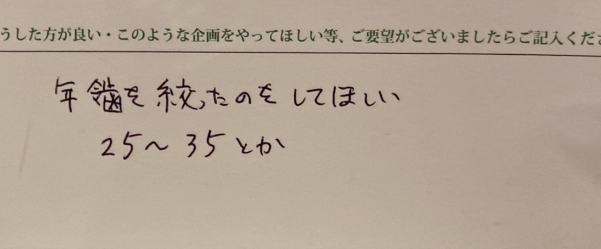 うした方が良い・このような企画をやってほしい等、ご要望がございましたらご記入くださ
年齢を絞ったのをしてほしい
25〜35とか